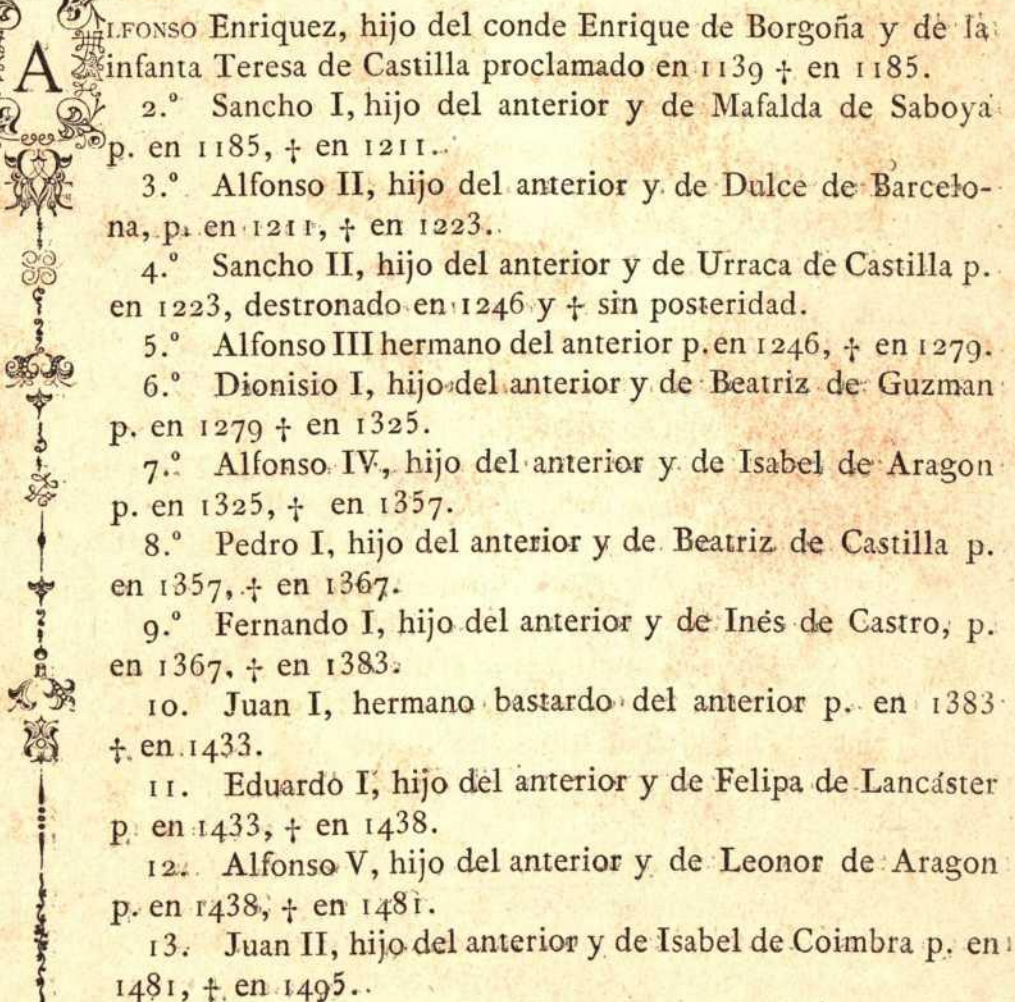 ALFONSO Enriquez, hijo del conde Enrique de Borgoña y de la
infanta Teresa de Castilla proclamado en 1139 † en 1185.
2.º Sancho I, hijo del anterior y de Mafalda de Saboya
p. en 1185, † en 1211.
3.º Alfonso II, hijo del anterior y de Dulce de Barcelo-
na, p. en 1211, † en 1223.
4.º Sancho II, hijo del anterior y de Urraca de Castilla p.
en 1223, destronado en 1246 y † sin posteridad.
5.º Alfonso III hermano del anterior p. en 1246, † en 1279.
6.º Dionisio I, hijo del anterior y de Beatriz de Guzman
p. en 1279 † en 1325.
7.º Alfonso IV, hijo del anterior y de Isabel de Aragon
p. en 1325, † en 1357.
8.º Pedro I, hijo del anterior y de Beatriz de Castilla p.
en 1357, † en 1367.
9.º Fernando I, hijo del anterior y de Inés de Castro, p.
en 1367, † en 1383.
10. Juan I, hermano bastardo del anterior p. en 1383
† en 1433.
11. Eduardo I, hijo del anterior y de Felipa de Lancáster
p. en 1433, † en 1438.
12. Alfonso V, hijo del anterior y de Leonor de Aragon
p. en 1438, † en 1481.
13. Juan II, hijo del anterior y de Isabel de Coimbra p. en
1481, † en 1495.